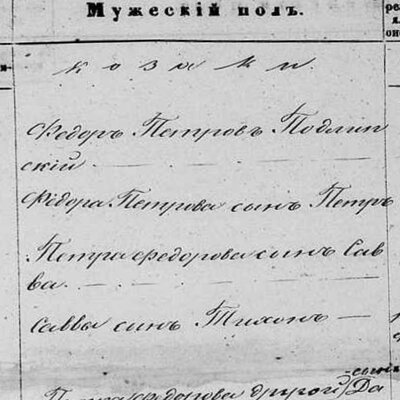 Мужескій полъ.
козаки.
Ѳедоръ Петровъ Подлип
скій
Ѳедора Петрова сынъ Петръ
Петра Ѳедорова сынъ Сав
ва.
Саввы сынъ Тихонъ —
сынъ
Петра Ѳедорова другой Да